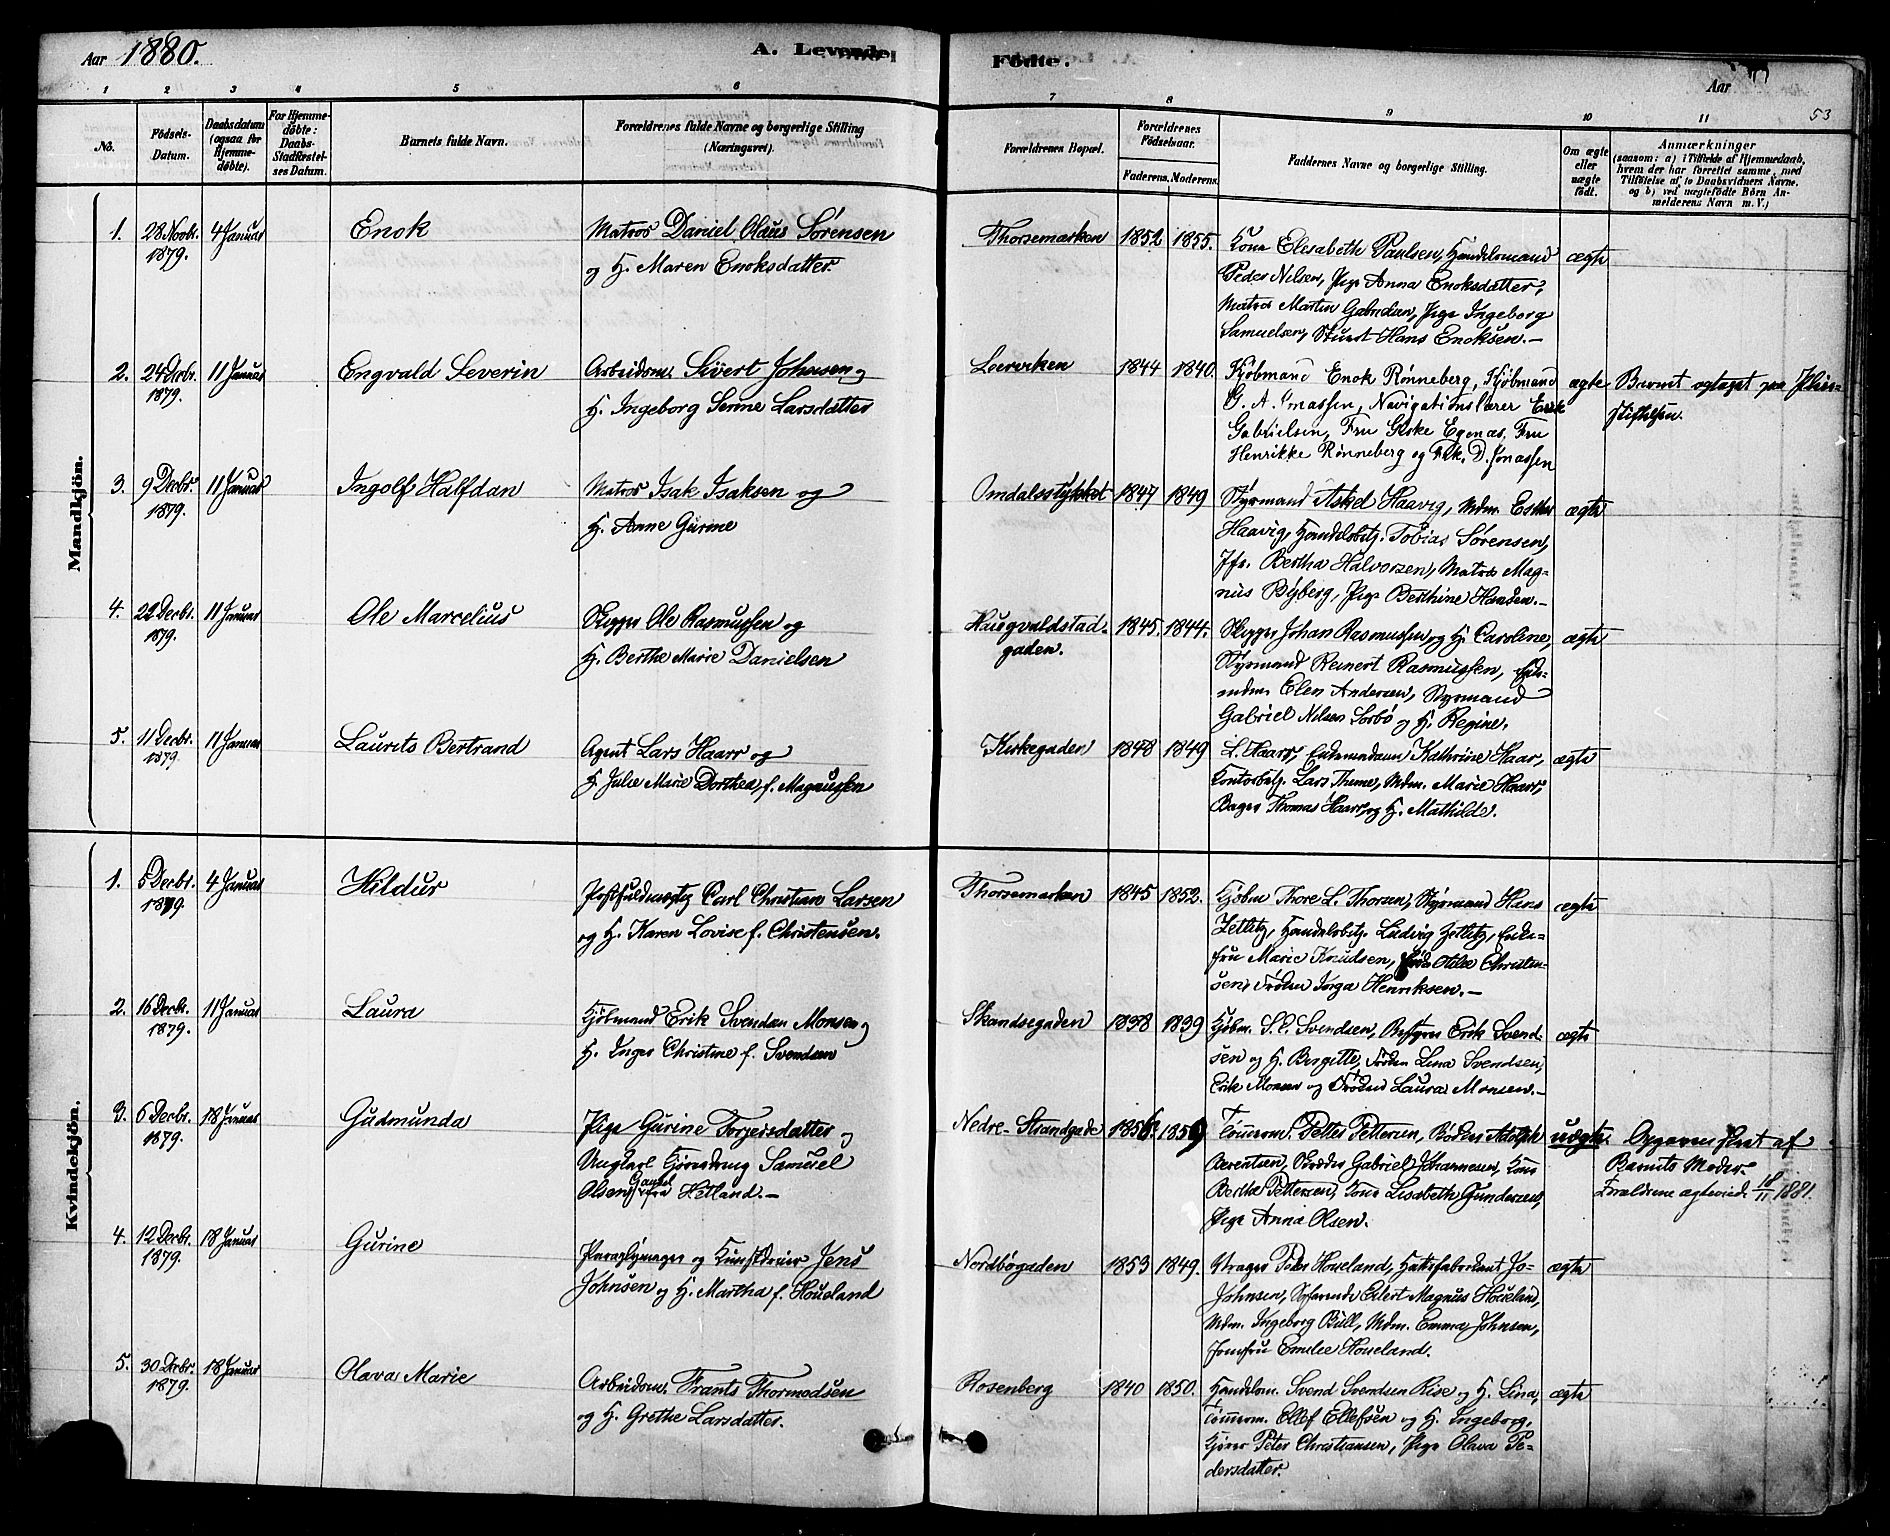 Aar 1880.
A. Levende
Fødte.
Aar
53
1 2 3 4 5 6 7 8 9 10 11
No.
Fødsels-
Datum.
Daabsdatum
(ogsaa for
Hjemme-
døbte).
For Hjemme-
døbte:
Daabs-
Stadfæstel-
ses Datum.
Barnets fulde Navn.
Forældrenes fulde Navne og borgerlige Stilling
(Næringsvei).
Forældrenes Bopæl.
Forældrenes
Fødselsaar.
Faderens. Moderens.
Faddernes Navne og borgerlige Stilling.
Om ægte
eller
uægte
født.
Anmærkninger
(saasom: a) i Tilfælde af Hjemmedaab,
hvem der har forrettet samme, med
Tilføielse af to Daabsvidners Navne,
og b) ved uægtefødte Børn An-
melderens Navn m. V.)
Mandkjön.
1. 28 Novbr. 1879. 4 Januar Enok
Matros Daniel Olaus Sørensen
og H. Maren Enoksdatter.
Thorsemarken 1852 1855.
Kone Elisabeth Paulsen, Handelsmand
Peder Nilsen, Pige Anna Enoksdatter,
Matros Martin Gabrielsen, Pige Ingeborg
Samuelsen, Stuert Hans Enoksen.—
ægte
2. 24 Decbr. 1879. 11 Januar Engvald Severin
Arbeidsm. Sivert Johnsen og
H. Ingeborg Serine Larsdatter
1844 1840.
Kjøbmand Enok Rønneberg, Kjøbmand
G. A. Jonassen, Navigationslærer Enok
Gabrielsen, Fru Giske Egenæs, Fru
Henrikke Rønneberg og Frk. D. Jonassen
ægte
Barnet optaget paa
stiftelsen.
3. 9 Decbr. 1879. 11 Januar Ingolf Halfdan
Matros Isak Isaksen og
H. Anne Gurine
Omdalsstykket 1847 1849
Styrmand Askel Haavig, Mdm. Esther
Haavig, Handelsbetj. Tobias Sørensen,
Jfr. Bertha Halvorsen, Matros Mag-
nus Byberg, Pige Berthine Hansen.—
ægte
4. 22 Decbr. 1879. 11 Januar Ole Marcelius
Skipper Ole Rasmussen og
H. Berthe Marie Danielsen
Haugvaldstad-
gaden. 1845. 1844.
Skipper Johan Rasmussen og H. Caroline,
Styrmand Reinert Rasmussen, Enke-
mdm. Elen Andersen, Styrmand
Gabriel Nilsen Sørbø og H. Regine.
ægte
5. 11 Decbr. 1879. 11 Januar Laurits Bertrand
Agent Lars Haarr og
H. Julie Marie Dorthea, f. Magnussen
Kirkegaden 1848 1849
L. Haarr, Enkemadam Kathrine Haar,
Contorbetj. Lars Thime, Mdm. Marie Haarr,
Bager Thomas Haarr, og H. Mathilde.
ægte
Kvindekjön.
1. 5 Decbr. 1879. 4 Januar Hildur
Postfuldmægtig Carl Christian Larsen
og H. Karen Lovise f. Christensen.
Thorsemarken 1845 1852.
Kjøbm Thore L. Thorsen, Styrmand Hans
Zetlitz, Handelsbetj. Ludvig Zetlitz, Enke-
fru Marie Knudsen, Otilie Christen-
sen, Frøken Inga Henriksen.—
ægte
2. 16 Decbr. 1879. 11 Januar Laura
Kjøbmand Erik Svendsen Monsen og
H. Inger Christine f. Svendsen
Skandsegaden 1838 1839
Kjøbm. S. E. Svendsen, Bestyrer Erik Svend-
sen og H. Birgitte, Frøken Lina Svendsen,
Erik Monsen og Frøken Laura Monsen.—
ægte
3. 6 Decbr. 1879. 18 Januar Gudmunda
Pige Gurine Torgersdatter og
Ungkarl Samuel
Olsen Gausel fra Hetland.—
Nedre-Strandgade 1856 1859
Tømrerm. Petter Pettersen, Bøder Adolph
Berentsen, Gabriel Johannesen, Kone
Berthe Pettersen, Kone Lisabeth Gundersen,
Pige Anna Olsen.
uægte.
Opgaven skeet af
Barnets Moder.
Forældrene ægteviede 18/11 1881.
4. 12 Decbr. 1879. 18 Januar Gurine
Paraplymager og Kunstdreier Jens
Johnsen og H. Martha f. Houeland
Nordbøgaden 1853 1849.
Drager Peder Houeland, Hattefabrikant Jo.
Johnsen, Søfarende Eilert Magnus Houeland,
Mdm. Ingeborg Bull, Mdm. Emma Johnsen,
Jomfru Emilie Houeland.
ægte
5. 30 Decbr. 1879. 18 Januar Olava Marie
Arbeidsm. Frants Thormodsen
og H. Grethe Larsdatter.
Rosenberg 1840 1850.
Handelsm. Svend Svendsen Rise og H. Lina,
Tømrerm. Ellef Ellefsen og H. Ingeborg,
Kjører Peter Christiansen, Pige Olava Pe-
dersdatter.
ægte